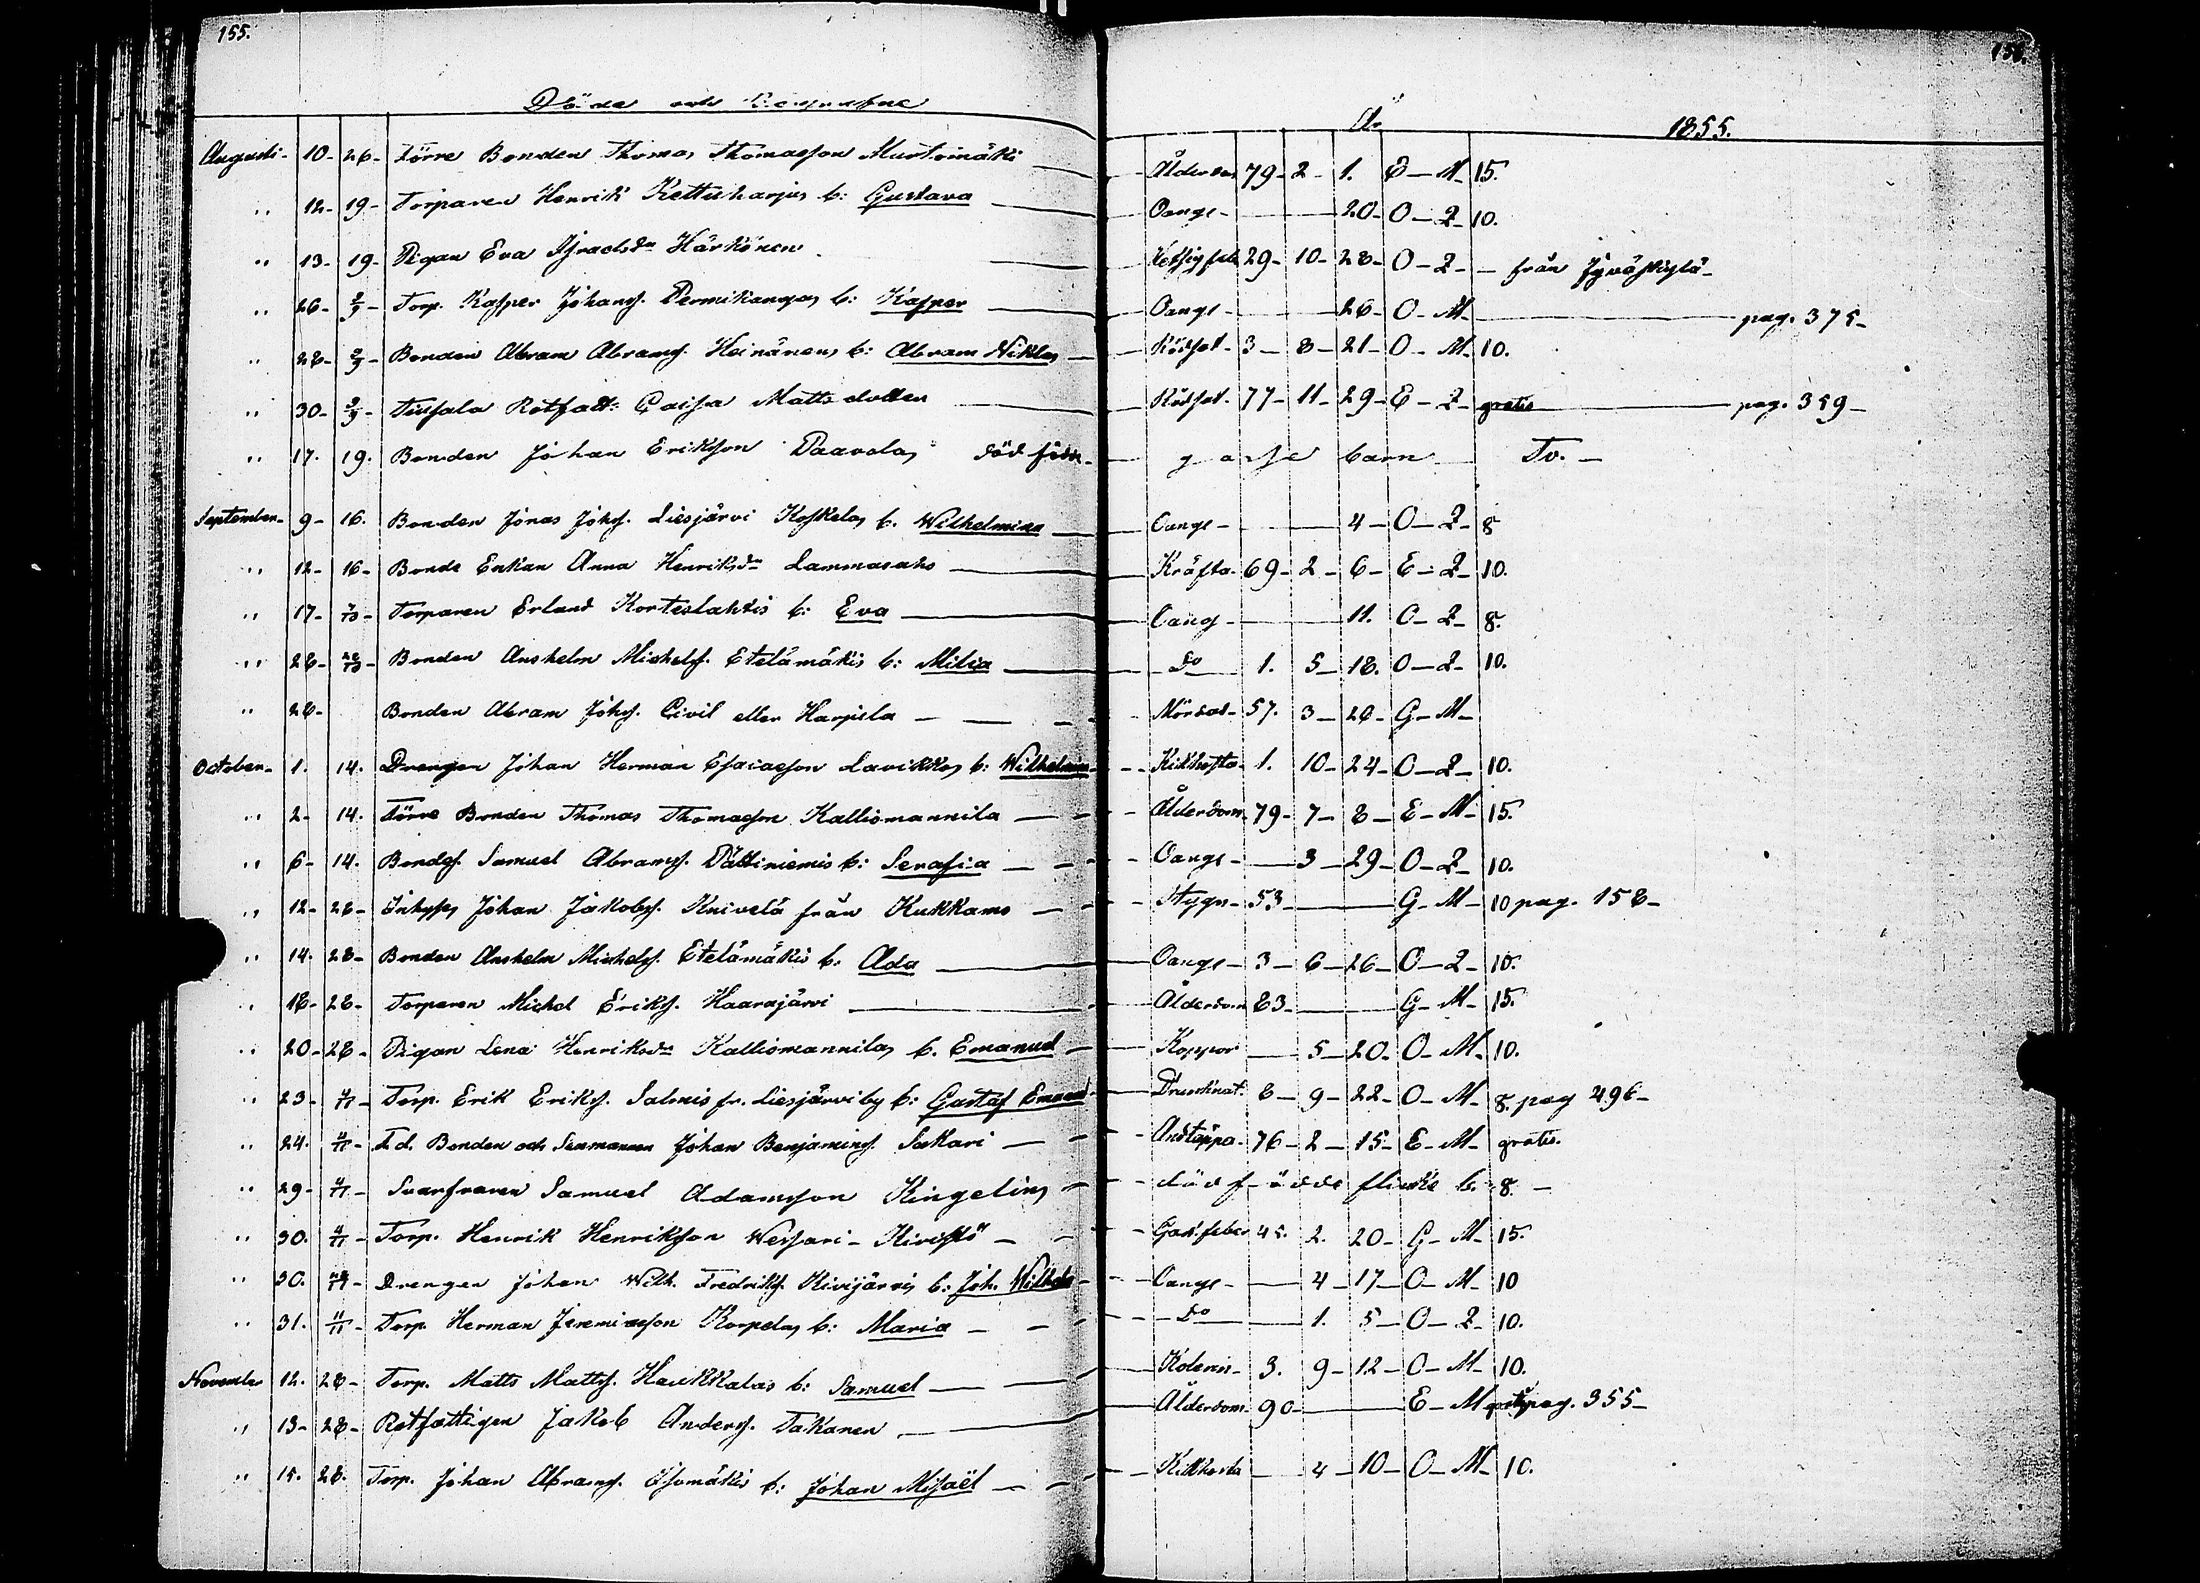 155. 156.
Döde och Begrafne År 1855.
Augusti - 10 - 26 - Förre Bonden Thomas Thomasson Murtomäki — Ålderdom 79 - 2 - 1. E - M - 15.
" 12 - 19 - Torparen Henrik Kettuharjus b: Gustava — Oange - 20 - O - Q - 10.
" 13 - 19 - Pigan Eva Israelsdr Härkönen — 29 - 10 - 28 - O - Q - från Jyväskylä -
" 26 - 2/9 - Torp. Kasper Johanss. Permikangas b: Kasper — Oange - 26 - O - M - pag. 375 -
" 28 - 2/9 - Bonden Abram Abramss. Heinänens b: Abram Niklas — Rödsot - 3 - 8 - 21 - O - M - 10.
" 30 - 2/9 - Rotfatt: Caisa Matts dotter — Rödsot - 77 - 11 - 29 - E - Q - gratis — pag. 359 -
" 17. 19. Bonden Johan Eriksson Paavolas död född gosse barn To. -
September - 9 - 16. Bonden Jonas Johss. Liesjärvi Koskelas b. Wilhelmina — Oange - 4 - O - Q - 8
" 12 - 16 - Bonde Enkan Anna Henriksdr Lammasaho — Kräfta - 69 - 2 - 6 - E - Q - 10.
" 17 - 7/10 - Torparen Erland Korteslahtis b: Eva — Oang - 11. O - Q - 8.
" 28 - Bonden Anshelm Michelss. Etelämäkis b: Milia — Do 1. 5 - 18. O - Q - 10.
" 28 - Bonden Abram Johss. Civil eller Harjula — Mördad - 57. 3 - 28 - G - M -
October - 1. 14. Drengen Johan Herman Esaiasson Lavikkos b: Wilhelmina - Kikhosta - 1. 10 - 24 - O - Q - 10.
" 2 - 14. Förre Bonden Thomas Thomasson Kalliomannila — Ålderdom - 79 - 7 - 8 - E - M - 15.
" 6 - 14. Bondes. Samuel Abramss. Pättiniemis b: Serafia — Oange - 3 - 29 - O - Q - 10.
" 12 - 28 - Inhyses Johan Jakobss. Knivelä från Kukkamo — Stygn - 53 - G - M - 10 pag. 158 -
" 14. 28 - Bonden Anshelm Michelss. Etelämäkis b: Ada — Oange - 3 - 6 - 26 - O - Q - 10.
" 18 - 28 - Torparen Michel Erikss. Haarajärvi — Ålderdom 83 - G - M - 15.
" 20 - 28 - Pigan Lena Henriksdr Kalliomannilas b. Emanuel — Koppor - 5 - 20 - O - M - 10.
" 23 - 4/11 - Torp. Erik Erikss. Salmis fr. Liesjärvi by b: Gustaf Emanuel - Drunknat. 8 - 9 - 22 - O - M - 8. pag 496 -
" 24. 4/11 - F. d. Bonden och Sexmannen Johan Benjaminss. Sakari — Andtäppa - 76 - 2 - 15 - E - M - gratis.
" 29 - 4/11 - Svarfvaren Samuel Adamsson Kingelins - död födde flicke b. 8. -
" 30. 4/11 - Torp. Henrik Henriksson Wessari - Kivistö — feber 45. 2. 20 - G - M - 15.
" 30. Drengen Johan Wilh. Fredrikss. Kivijärvis b: Joh. Wilhelm - Oange - 4 - 17 - O - M - 10
" 31. 11/11 - Torp Herman Jeremiasson Korpelas b: Maria — Do 1. 5 - O - Q - 10.
November 12. 28 - Torp. Matts Mattss. Haukkalas b: Samuel — Koleran - 3. 9 - 12 - O - M - 10.
" 13 - 28 - Rotfattigen Jakob Anderss. Takanen — Ålderdom - 90 - E - M pag. 355 -
" 15. 28. Torp. Johan Abramss. Isomäkis b: Johan Misaël — Kikhosta - 4 - 10 - O - M - 10.